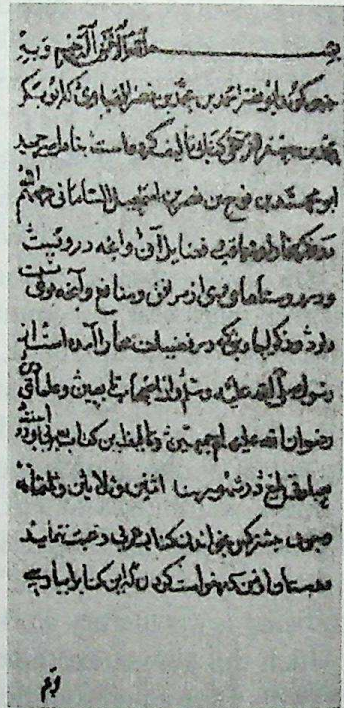 بسم الله الرحمن الرحیم و به
چنین گوید ابو نصر احمد بن محمد بن نصر القباوی که ابو بکر
محمد بن جعفر النرشخی کتابی تالیف کرده است بنام امیر حمید
ابو محمد نوح بن نصر بن اسمعیل السامانی رحمهم الله
در ذکر بخارا و مناقب و فضایل آن و آنچه در وییست
و در روستاهای وی از مرافق و منافع و آنچه بوی نسبت
دارد و ذکر احادیثی که در فضیلت بخارا آمده است از
رسول صلی الله علیه و سلم و از اصحاب و تابعین و علمای دین
رضوان الله علیهم اجمعین و تالیف این کتاب بعربی بوده است
بلیغ در شهور سنه اثنین و ثلاثین و ثلثمائة
بیشتر بخواندن کتاب عربی رغبت ننمایند
دوستان از من درخواست کردند که این کتاب را بپارسی